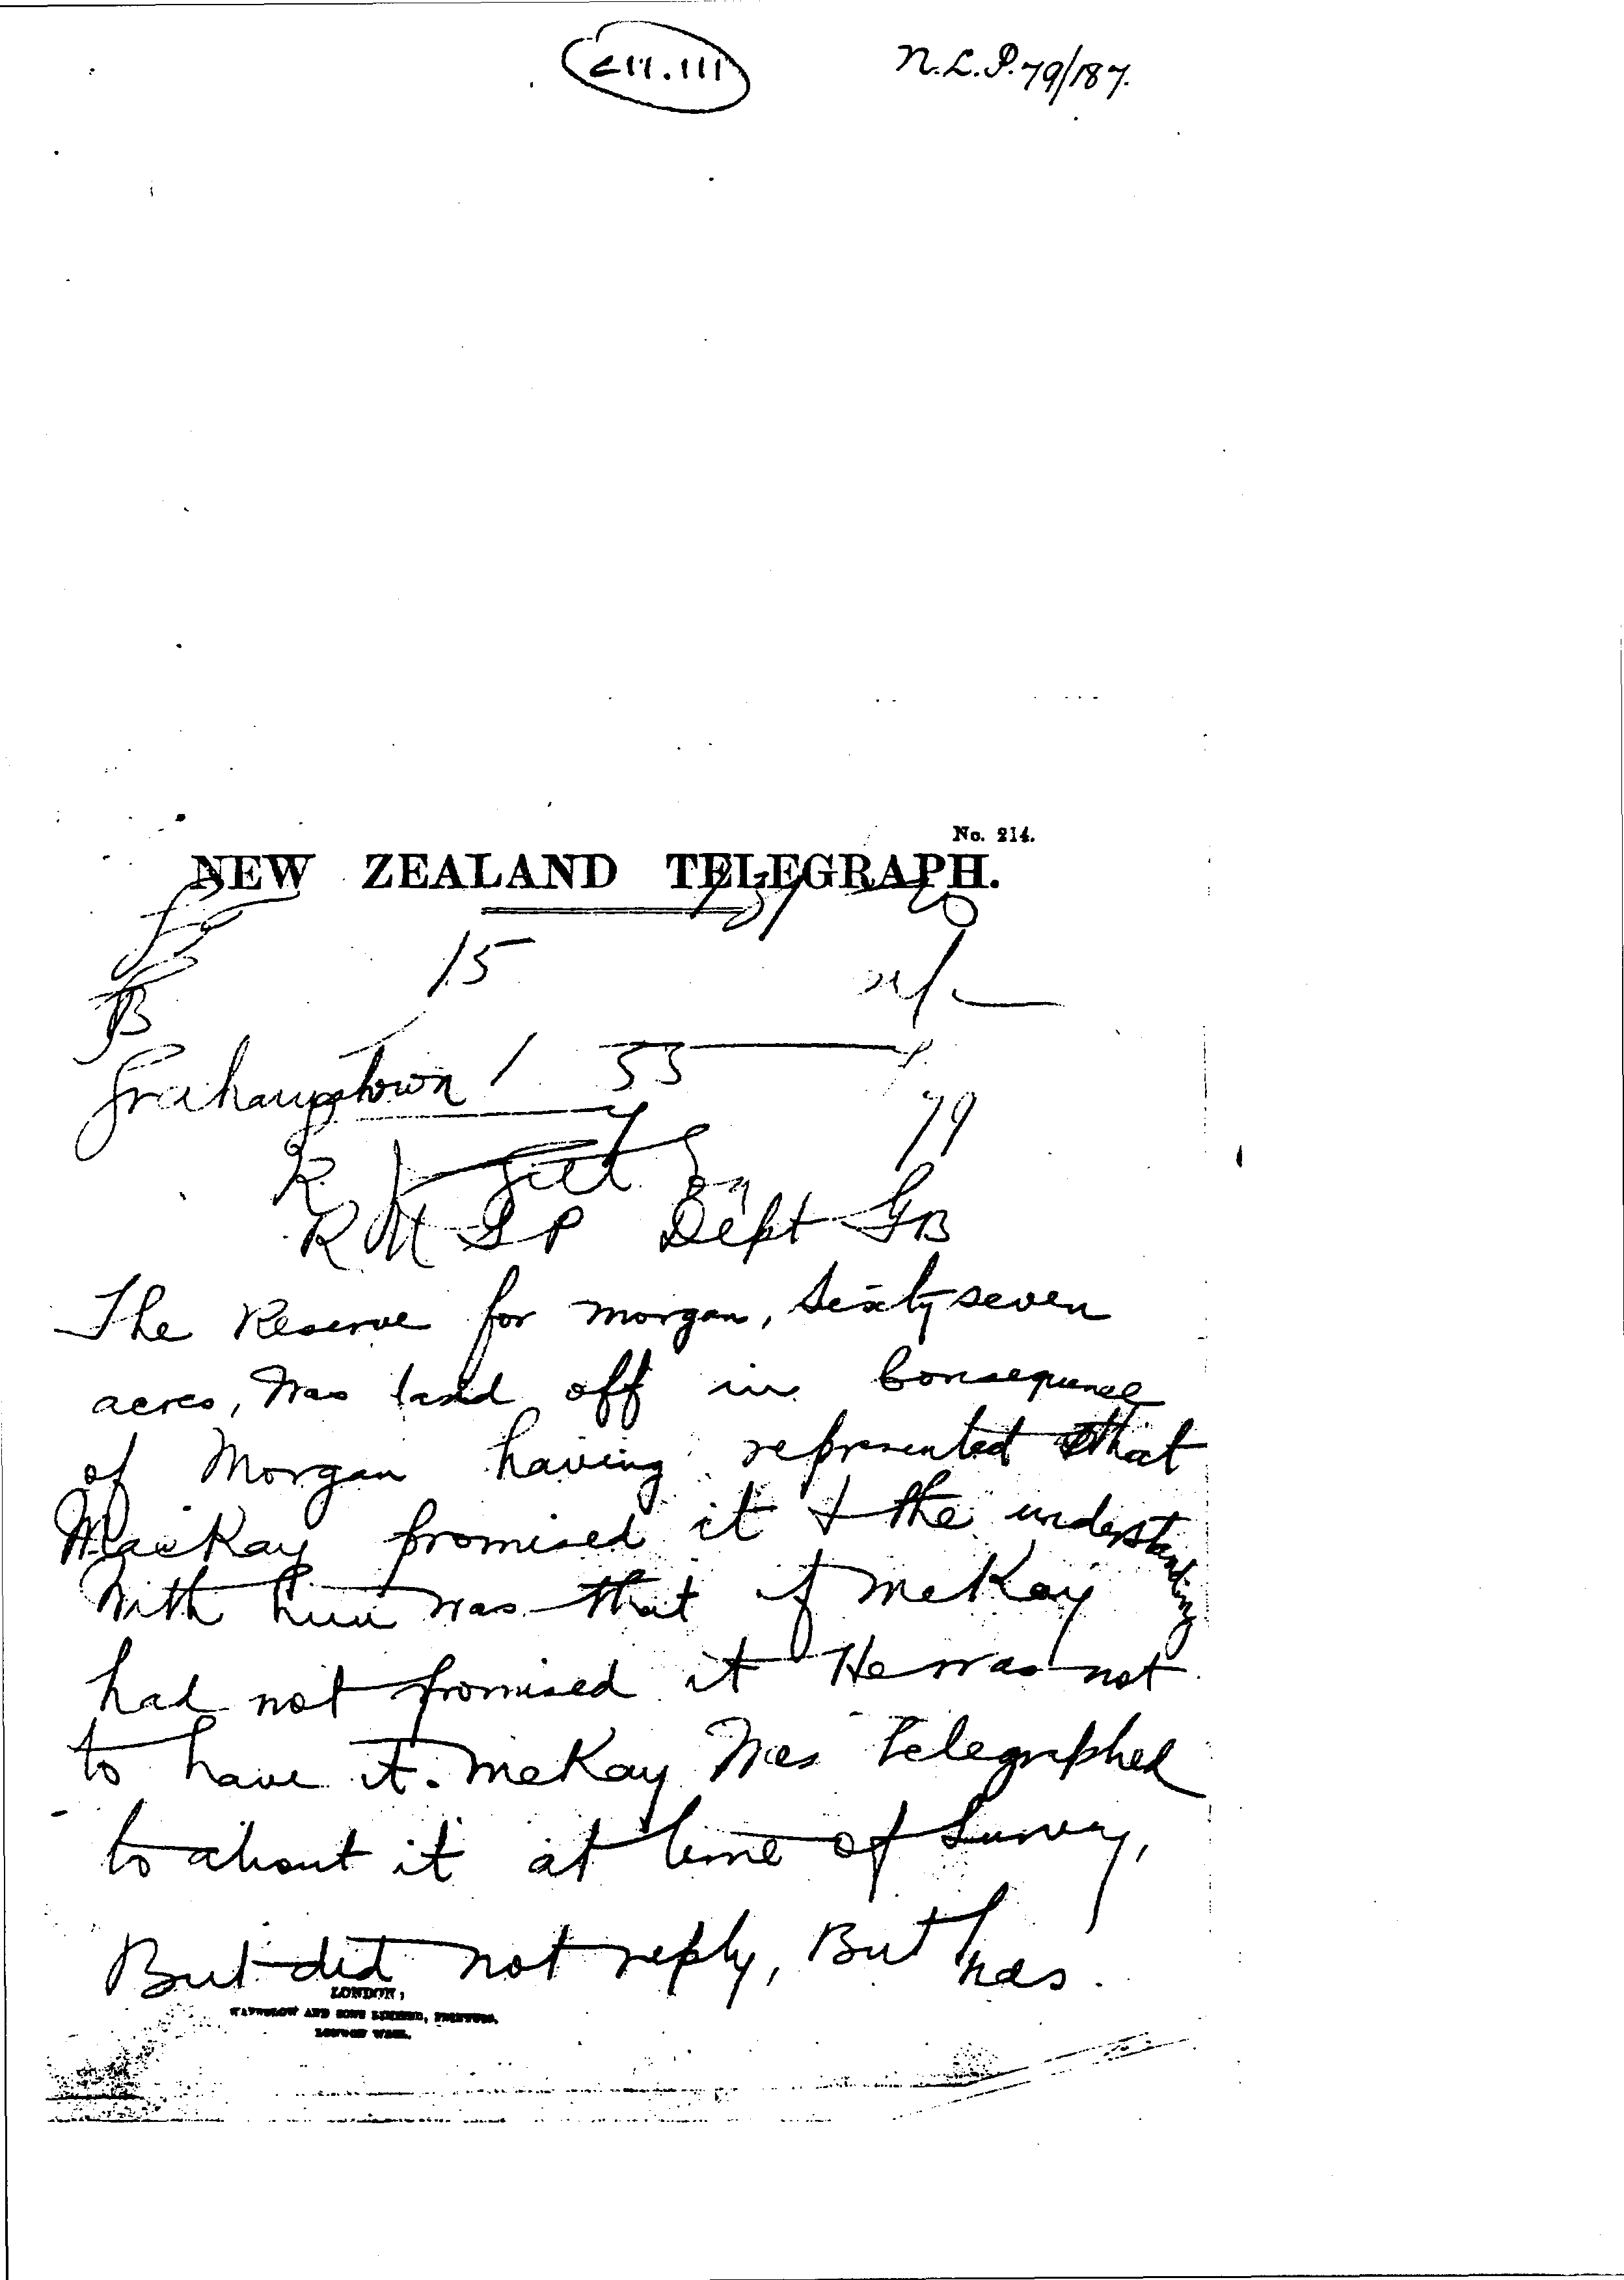 N.L.P. 79/187.
No. 214.
NEW ZEALAND TELEGRAPH.
15
Grahamstown 1 55
79
R J Gill Esq
R M L P Dept GB
The Reserve for morgan, Sixty seven
acres, was laid off in Consequence
of Morgan having represented that
MacKay promised it & the understanding
With him was that if McKay
had not promised it He was not
to have it. McKay Was Telegraphed
to about it at time of Survey,
But did not reply, But has.
LONDON;
WATERLOW AND SONS LIMITED, PRINTERS,
LONDON WALL.